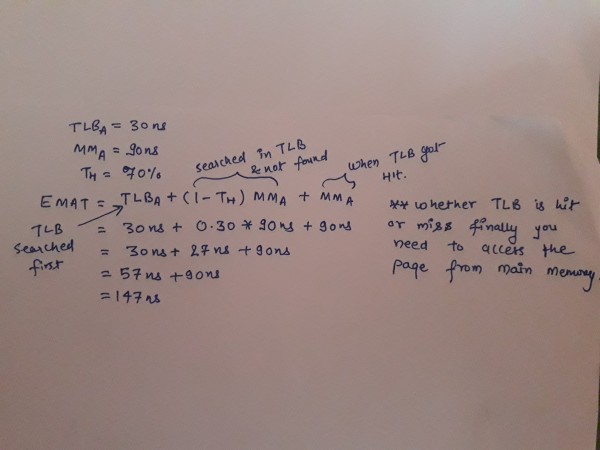 TLBA = 30ns
MMA = 90ns
TH = 70%
searched in TLB
& not found
when TLB got
Hit.
EMAT = TLBA + (1 - TH) MMA + MMA
TLB
searched
first
= 30ns + 0.30 * 90ns + 90ns
= 30ns + 27ns + 90ns
= 57ns + 90ns
= 147ns
** whether TLB is hit
or miss finally you
need to access the
page from main memory.